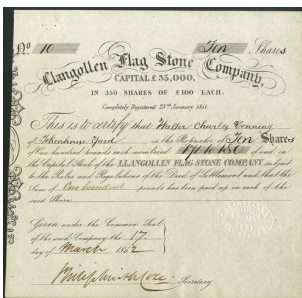 No. 10 Ten Shares
Llangollen Flag Stone Company,
CAPITAL £35,000,
IN 350 SHARES OF £100 EACH.
Completely Registered 23rd January 1851.
This is to certify that Walter Charles Venning
of Tokenhouse Yard is the Proprietor of Ten Shares
of One hundred pounds each numbered 171 to 180 of and in
the Capital Stock of the LLANGOLLEN FLAG STONE COMPANY, subject
to the Rules and Regulations of the Deed of Settlement and that the
Sum of One hundred pounds has been paid up on each of the
said Shares.
Given under the Common Seal
of the said Company the 17
day of March 1852
Secretary